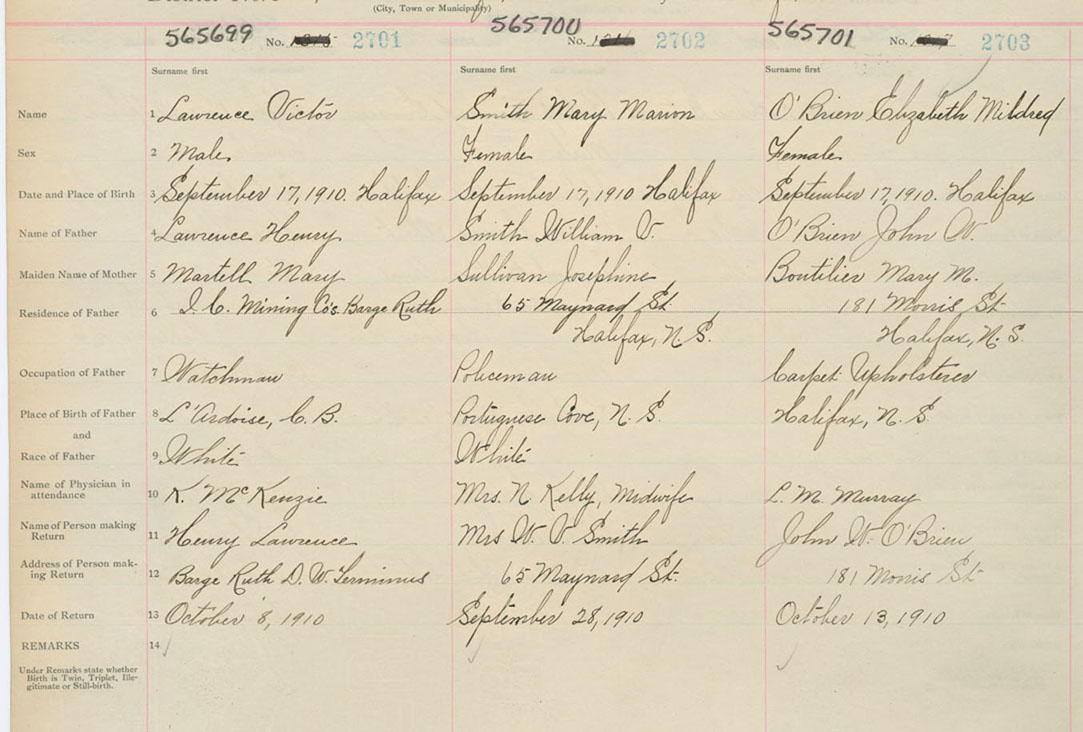 (City, Town or Municipality)
565699 No. 2701 565700 No. 2702 565701 No. 2703
Surname first Surname first Surname first
Name 1 Lawrence Victor Smith Mary Marion O'Brien Elizabeth Mildred
Sex 2 Male Female Female
Date and Place of Birth 3 September 17, 1910. Halifax September 17, 1910 Halifax September 17, 1910. Halifax
Name of Father 4 Lawrence Henry Smith William V. O'Brien John W.
Maiden Name of Mother 5 Martell Mary Sullivan Josephine Boutilier Mary M.
Residence of Father 6 Mining Co's. Barge Ruth 65 Maynard St. 181 Morris St.
Halifax, N.S. Halifax, N.S.
Occupation of Father 7 Watchman Policeman Carpet Upholsterer
Place of Birth of Father 8 L'Ardoise, C.B. Portuguese Cove, N.S. Halifax, N.S.
and
Race of Father 9 White White
Name of Physician in
attendance 10 K. McKenzie Mrs. N. Kelly, Midwife L. M. Murray
Name of Person making
Return 11 Henry Lawrence Mrs W. V. Smith John W. O'Brien
Address of Person mak-
ing Return 12 Barge Ruth D.W. Terminus 65 Maynard St. 181 Morris St.
Date of Return 13 October 8, 1910 September 28, 1910 October 13, 1910
REMARKS 14
Under Remarks state whether
Birth is Twin, Triplet, Ille-
gitimate or Still-birth.